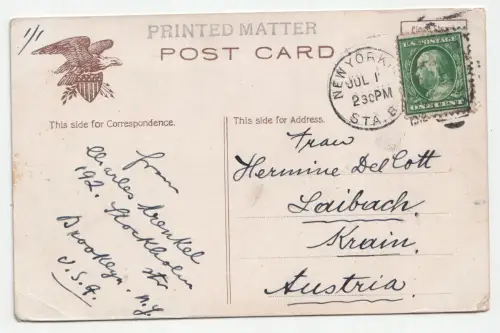 1/1
PRINTED MATTER
POST CARD
NEW YORK, N.
JUL 1
2 30 PM
STA. B.
U.S. POSTAGE
ONE CENT
This side for Correspondence.
This side for Address.
from
Charles Krenkel
192. Stockholm
str.
Brooklyn. N.Y.
U.S.A.
Frau
Hermine Del Cott
Laibach
Krain.
Austria.